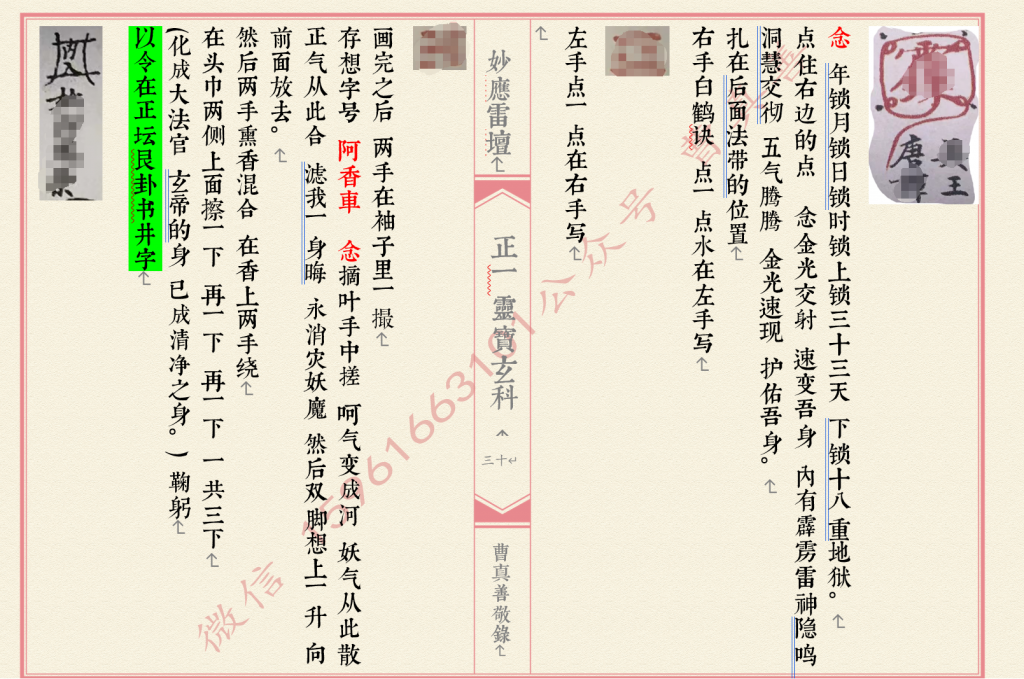 唐
王
念 年锁月锁日锁时锁上锁三十三天 下锁十八重地狱。
点住右边的点 念金光交射 速变吾身 內有霹雳雷神隐鸣
洞慧交彻 五气腾腾 金光速现 护佑吾身。
扎在后面法带的位置
右手白鹤诀 点一 点水在左手写
左手点一 点在右手写
妙應雷壇
正一靈寶玄科
三十
曹真善敬錄
画完之后 两手在袖子里一 撮
存想字号 阿香車 念摘叶手中搓 呵气变成河 妖气从此散
正气从此合 滤我一 身晦 永消灾妖魔 然后双脚想上一 升 向
前面放去。
然后两手熏香混合 在香上两手绕
在头巾两侧上面擦一下 再一下 再一下 一共三下
(化成大法官 玄帝的身 已成清净之身。) 鞠躬
以令在正坛艮卦书井字
微信 15961663101公众号 曹真善